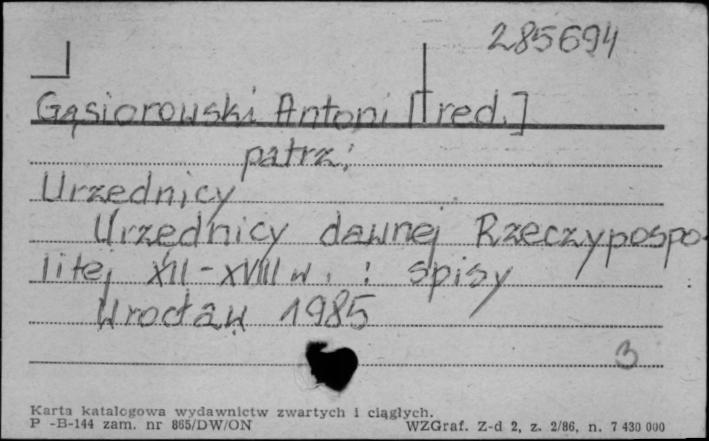 285694
Gąsiorowski Antoni [red.]
patrz:
Urzędnicy
Urzędnicy dawnej Rzeczypospo-
litej XII-XVIII w. : spisy
Wrocław 1985
3
Karta katalogowa wydawnictw zwartych i ciągłych.
P -B-144 zam. nr 865/DW/ON WZGraf. Z-d 2, z. 2/86, n. 7 430 000